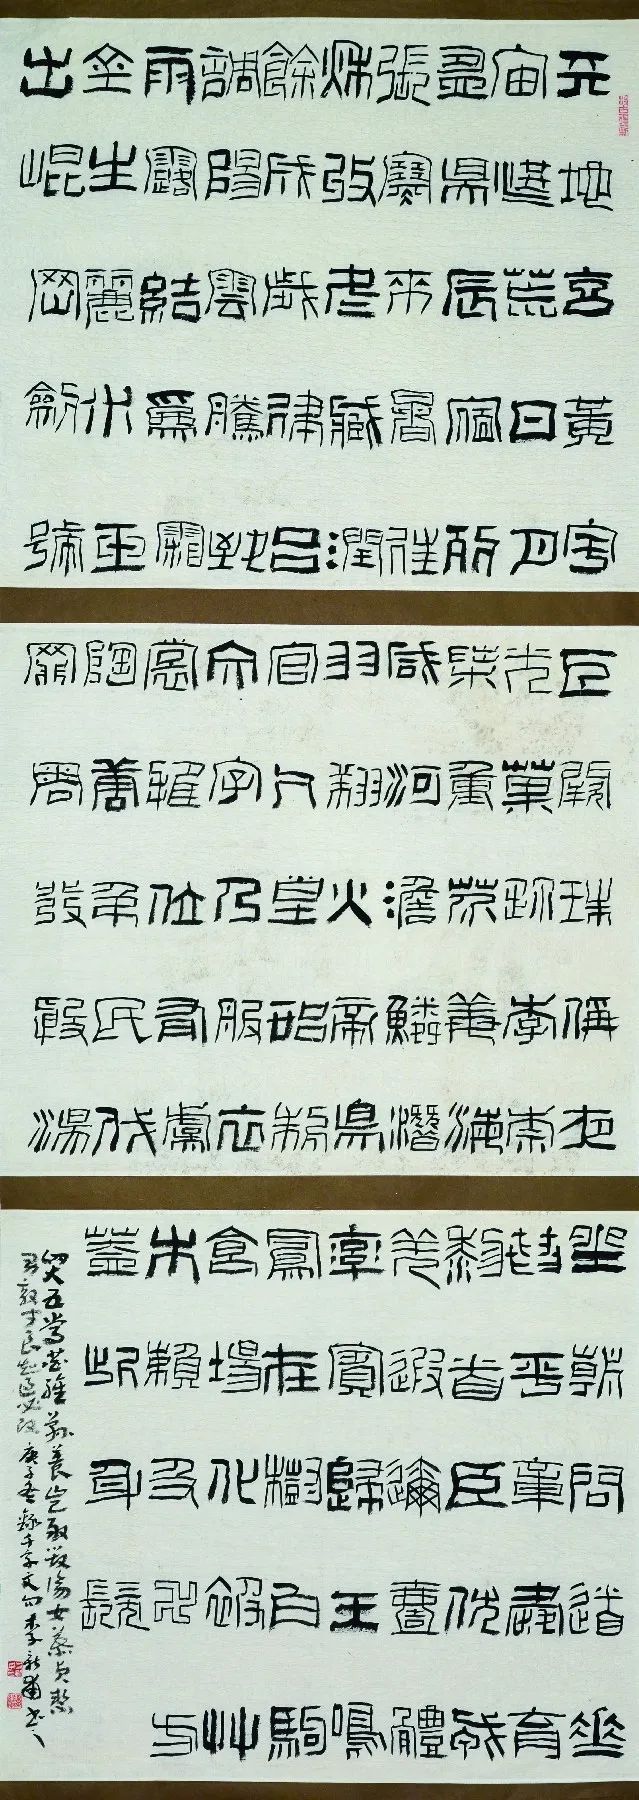 天地玄黃宇
宙洪荒日月
盈昃辰宿列
張寒來暑往
秋收冬藏潤
餘成歲律呂
調陽雲騰致
雨露結為霜
金生麗水玉
出崐岡劍號
巨闕珠稱夜
光果珍李柰
菜重芥薑海
咸河澹鱗潛
羽翔火帝鳥
官人皇始制
文字乃服衣
裳推位有虞
陶唐弔民伐
罪周發殷湯
坐朝問道垂
拱平章愛育
黎首臣伏戎
羌遐邇壹體
率賓歸王鳴
鳳在樹白駒
食場化被艸
木賴及卍方
蓋此身髮
四大五常恭惟鞠養豈敢毀傷女慕貞潔
男效才良知過必改 庚子錄千字文句李新書